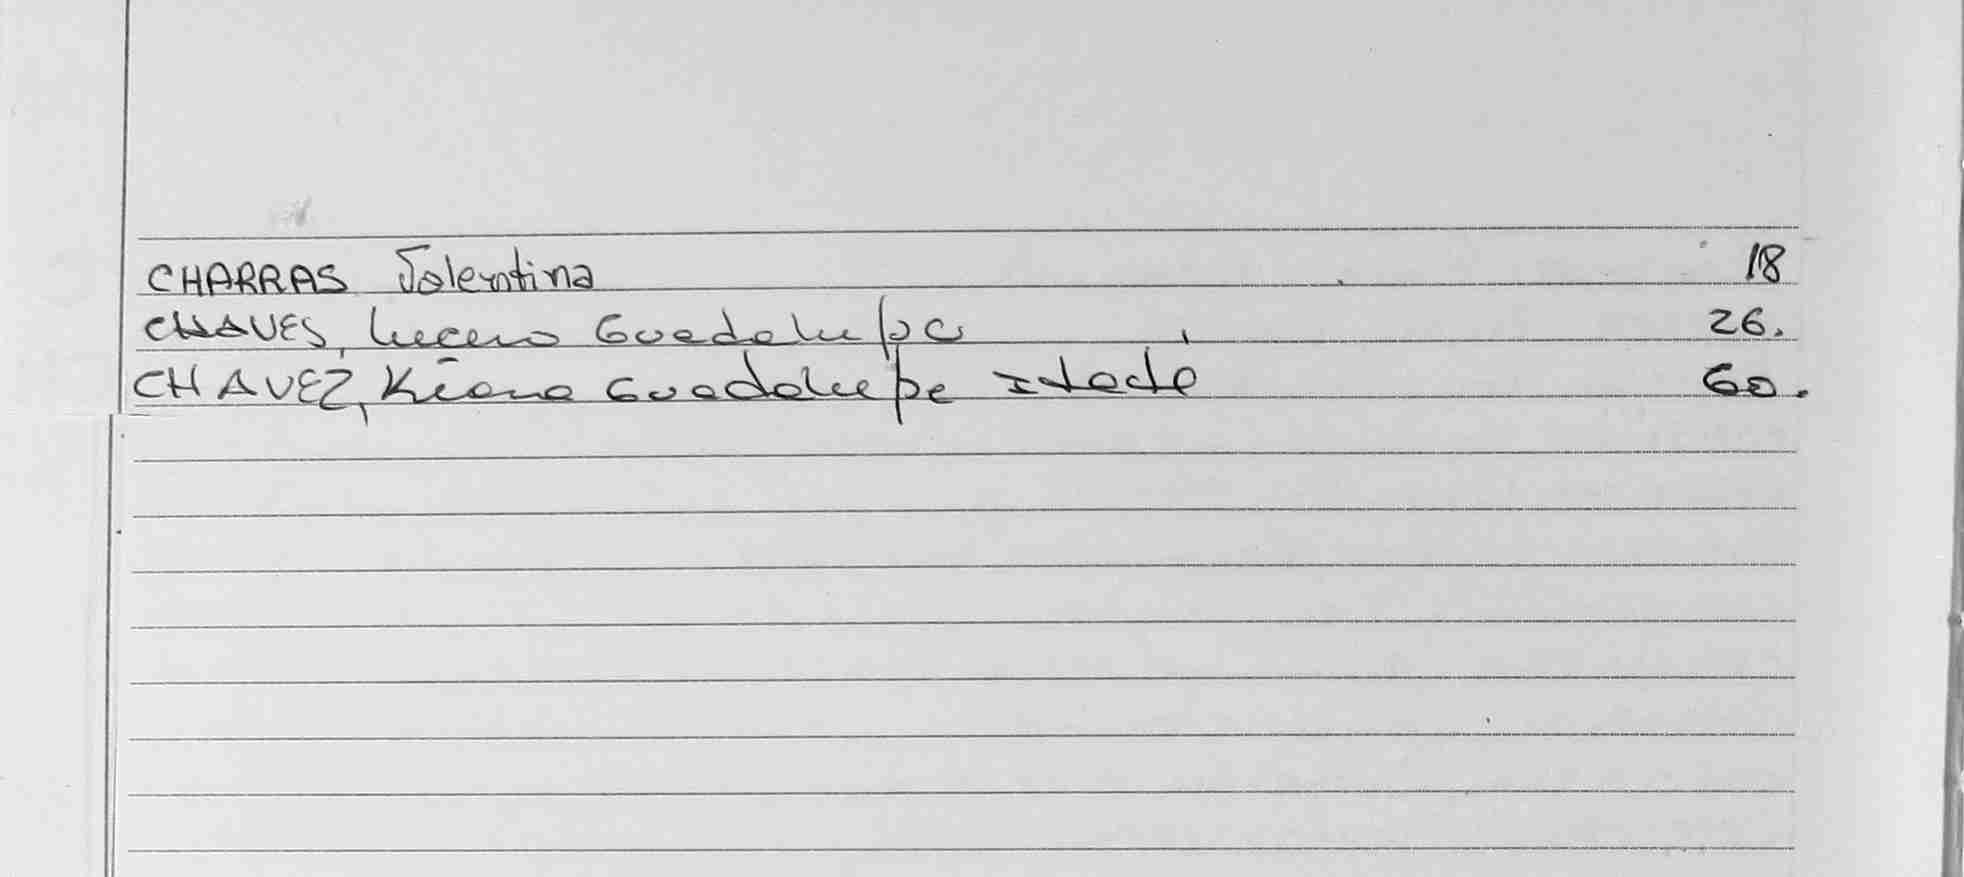 CHARRAS Valentina 18
CHAVES, Lucero Guadalupe 26.
CHAVEZ, Kiana Guadalupe Itatí 60.